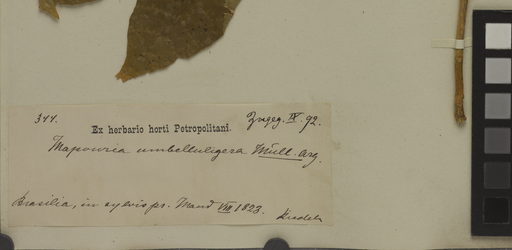 344. Zugeg. IX. 92.
Ex herbario horti Petropolitani.
Mapouria umbelluligera Müll. Arg.
Brasilia, in sylvis pr. Mand VIII 1823.
Riedel